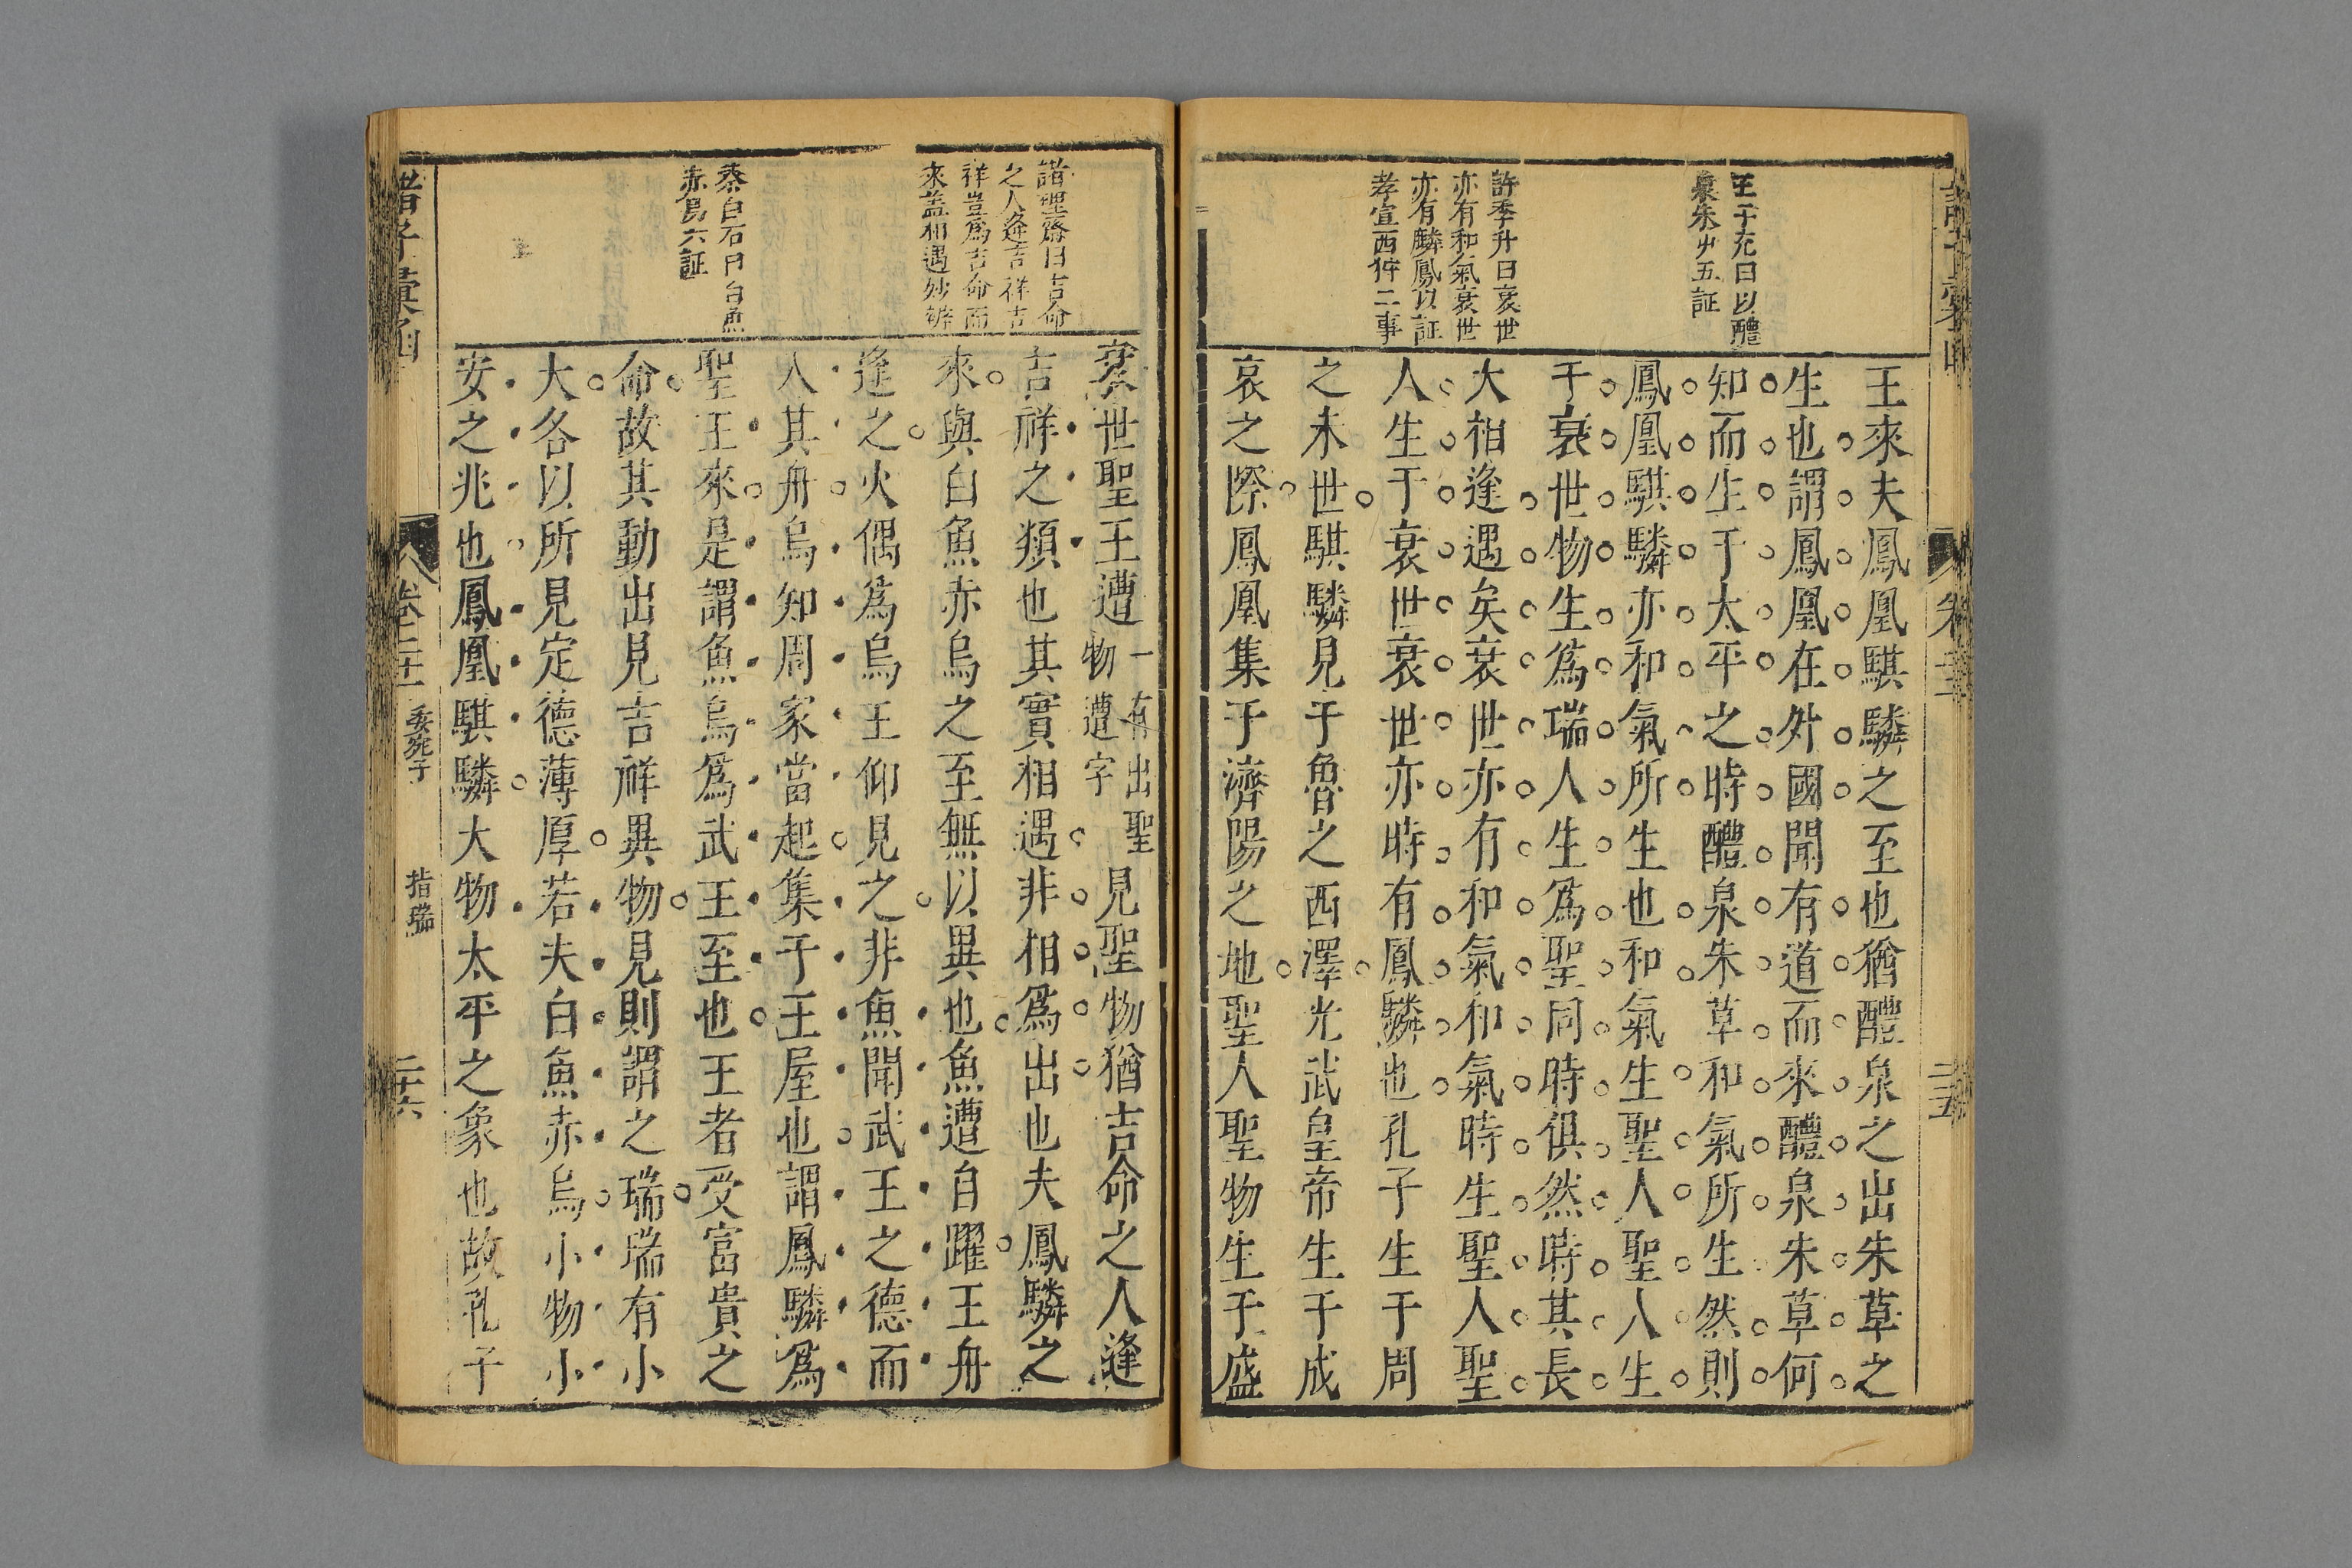 王子充曰以醴
泉朱屮五証
許季升曰衰世
亦有和氣衰世
亦有麟鳳以証
孝宣西狩二事
王來夫鳳凰騏驎之至也猶醴泉之出朱草之
生也謂鳳凰在外國聞有道而來醴泉朱草何
知而生于太平之時醴泉朱草和氣所生然則
鳳凰騏驎亦和氣所生也和氣生聖人聖人生
于衰世物生爲瑞人生爲聖同時俱然時其長
大相逢遇矣衰世亦有和氣和氣時生聖人聖
人生于衰世衰世亦時有鳳驎也孔子生于周
之末世騏驎見于魯之西澤光武皇帝生于成
哀之際鳳凰集于濟陽之地聖人聖物生于盛
卷二十
二十五
諸理齋曰吉命
之人逢吉祥吉
祥豈爲吉命而
來盖相遇妙辨
蔡白石曰白魚
赤烏六証
衰世聖王遭一有出聖物遭字見聖物猶吉命之人逢
吉祥之類也其實相遇非相爲出也夫鳳驎之
來與白魚赤烏之至無以異也魚遭自躍王舟
逢之火偶爲烏王仰見之非魚聞武王之德而
入其舟烏知周家當起集于王屋也謂鳳驎爲
聖王來是謂魚烏爲武王至也王者受富貴之
命故其動出見吉祥異物見則謂之瑞瑞有小
大各以所見定德薄厚若夫白魚赤烏小物小
安之兆也鳳凰騏驎大物太平之象也故孔子
諸子彙函
卷二十
委宛子
指瑞
二十六